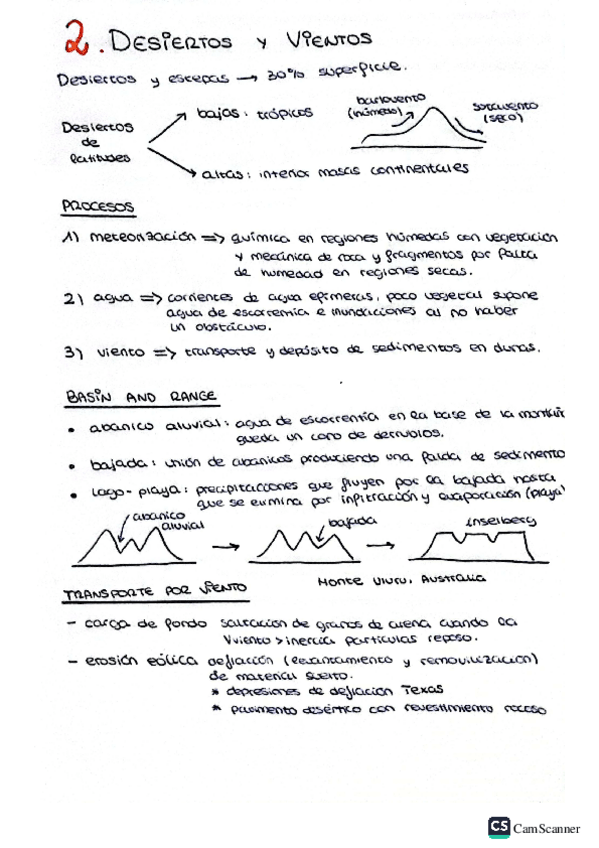 2. DESIERTOS Y VIENTOS
Desiertos y estepas → 30% superficie.
Desiertos de latitudes
bajas: trópicos
altas: interior masas continentales
barlovento (húmedo)
sotavento (seco)
PROCESOS
1) meteorización => química en regiones húmedas con vegetación
y mecánica de roca y fragmentos por falta
de humedad en regiones secas.
2) agua => corrientes de agua efímeras, poco vegetal supone
agua de escorrentía e inundaciones al no haber
un obstáculo.
3) viento => transporte y depósito de sedimentos en dunas.
BASIN AND RANGE
• abanico aluvial: agua de escorrentía en la base de la montañ
queda un cono de derrubios.
• bajada: unión de abanicos produciendo una falda de sedimento
• lago-playa: precipitaciones que fluyen por la bajada hasta
que se elimina por infiltración y evaporación (playa)
abanico aluvial
bajada
inselberg
Monte Uluru, Australia
TRANSPORTE POR VIENTO
- carga de fondo saltación de granos de arena cuando la
Vviento > inercia partículas reposo.
- erosión eólica deflación (levantamiento y removilización)
de material suelto.
* depresiones de deflación Texas
* pavimento desértico con revestimiento rocoso
CS CamScanner